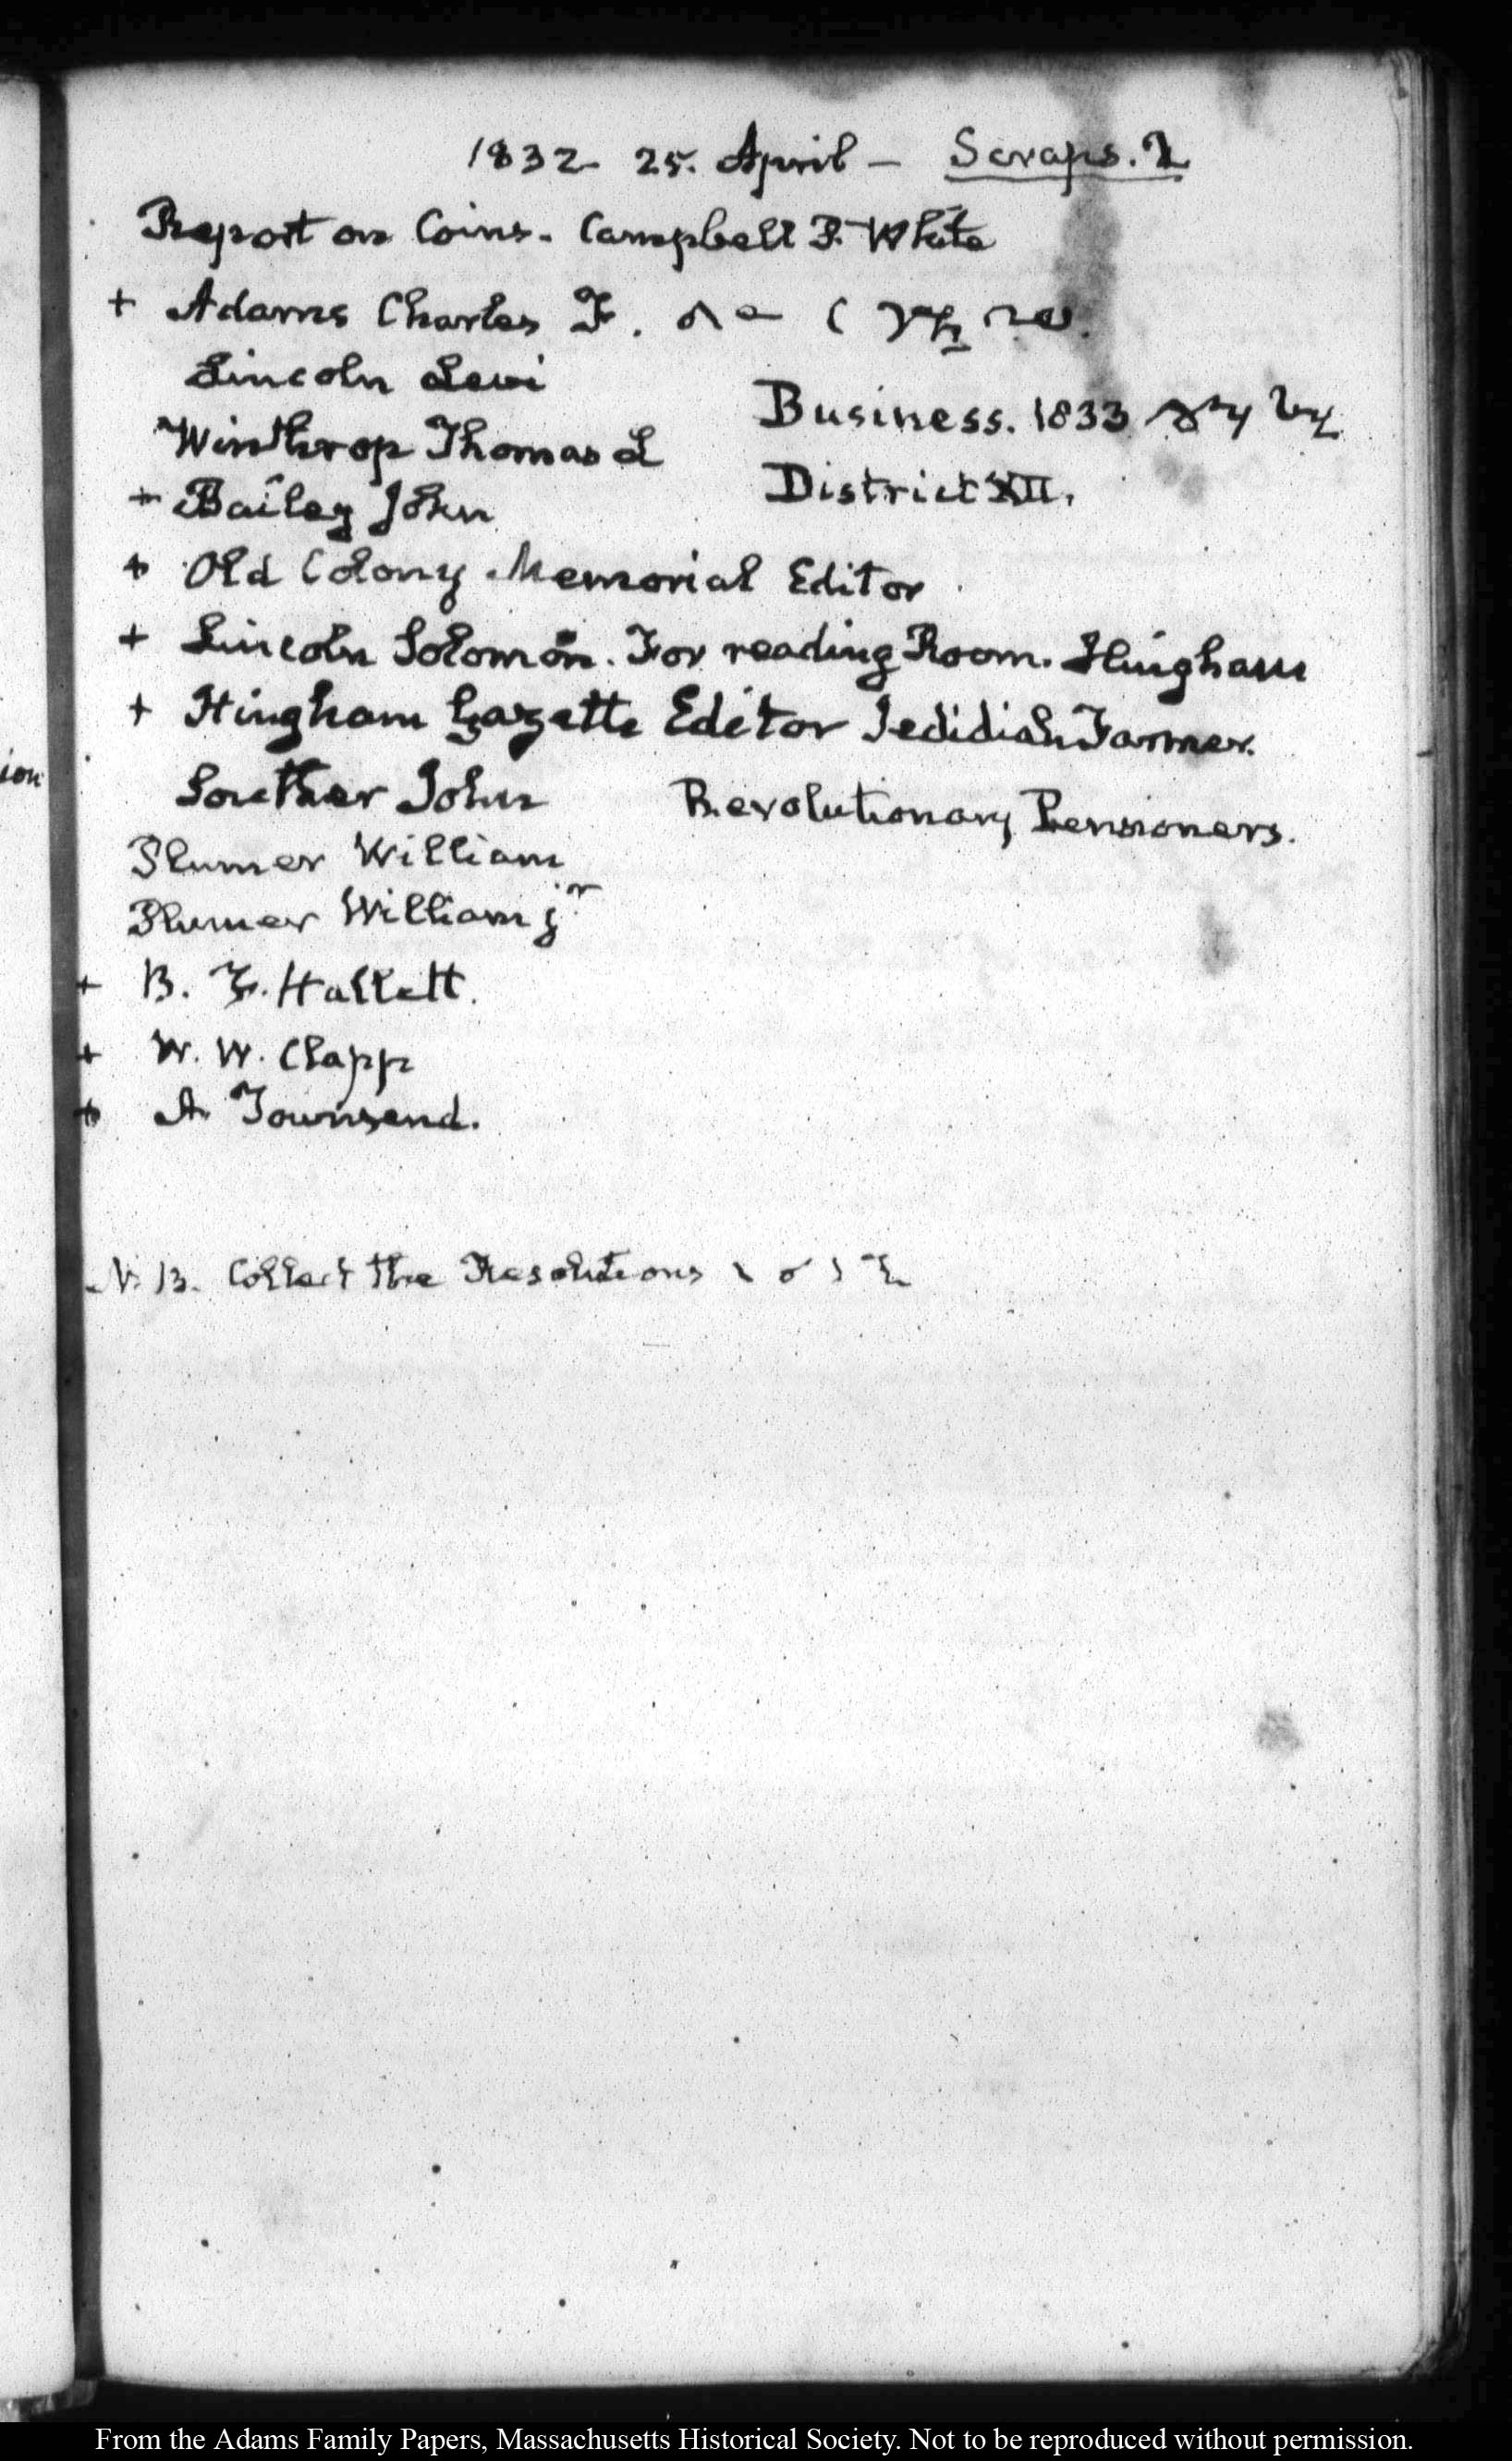 1832 25. April – Scraps. 2
Report on Coins. Campbell P. White
+ Adams Charles F.
Lincoln Levi
Business. 1833
Winthrop Thomas L
District XII.
+ Bailey John
+ Old Colony Memorial Editor
+ Lincoln Solomon. For reading Room. Hingham
+ Hingham Gazette Editor Jedidiah Farmer.
Souther John Revolutionary Pensioners.
Plumer William
Plumer William jr
+ B. F. Hallett.
+ W. W. Clapp
+ A Townsend.
N. B. Collect the Resolutions
ion
From the Adams Family Papers, Massachusetts Historical Society. Not to be reproduced without permission.